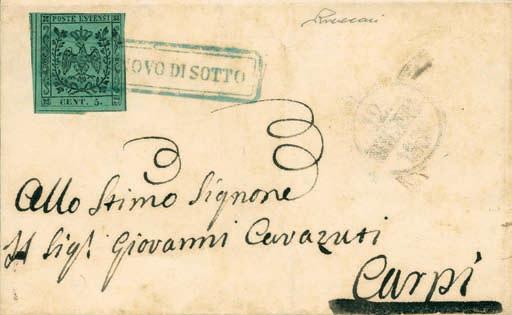 POSTE ESTENSI
CENT. 5.
OVO DI SOTTO
Allo Stimo Signore
Il Sigr. Giovanni Cavazuti
Carpi